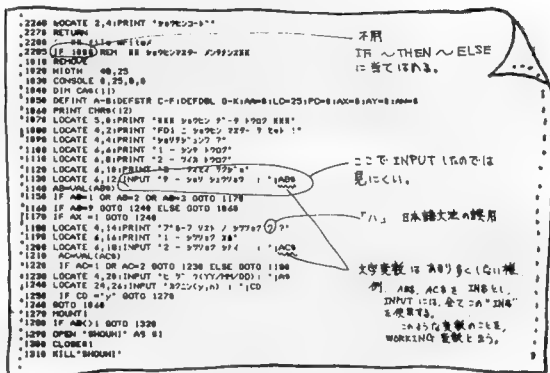 2260 LOCATE 2,4:PRINT "ショウヒンコード"
2270 RETURN
2205 IF 1000 REM ** ショウヒンマスター メンテナンス**
1010 REMOVE
1020 WIDTH 40,25
1030 CONSOLE 0,25,0,0
1040 DIM CA$(1)
1050 DEFINT A-B:DEFSTR C-F:DEFDBL G-K:AA=0:LO=25:PC=0:AX=0:AY=0:AM=0
1060 PRINT CHR$(12)
1070 LOCATE 5,0:PRINT "*** ショウヒン データ トウロク ***"
1080 LOCATE 4,2:PRINT "FDニ ショウヒン マスター ヲ セット !"
1090 LOCATE 4,4:PRINT
1100 LOCATE 6,6:PRINT "1 - シンキ トウロク"
1110 LOCATE 6,8:PRINT "2 - ツイカ トウロク"
1120 LOCATE 6,10:PRINT
1130 LOCATE 6,12:INPUT "9 - ショリ シュウリョウ : ";AB$
1140 AB=VAL(AB$)
1150 IF AB=1 OR AB=2 OR AB=3 GOTO 1170
1160 IF AB=9 GOTO 1240 ELSE GOTO 1060
1170 IF AX =1 GOTO 1240
1180 LOCATE 4,14:PRINT
1190 LOCATE 6,16:PRINT
1200 LOCATE 6,18:INPUT
1210 AC=VAL(AC$)
1220 IF AC=1 OR AC=2 GOTO 1230 ELSE GOTO 1180
1230 LOCATE 4,20:INPUT "ヒヅケ (YY/MM/DD) : ";A$
1240 LOCATE 24,24:INPUT "カクニン(y,n) : ";CD
1250 IF CD ="y" GOTO 1270
1260 GOTO 1060
1270 MOUNT1
1280 IF AB<>1 GOTO 1320
1290 OPEN "SHOUHI" AS #1
1300 CLOSE#1
1310 KILL"SHOUHI"
不用
IF ～THEN ～ELSE
に当てはめる。
ここで INPUTしたのでは
見にくい。
「ハ」 日本語文法の誤用
文字変数は あまり多くしない様
例. AB$, AC$ を IN$とし、
INPUTには、全てこの"IN$"
を使用する。
このような変数のことを、
WORKING 変数と言う。